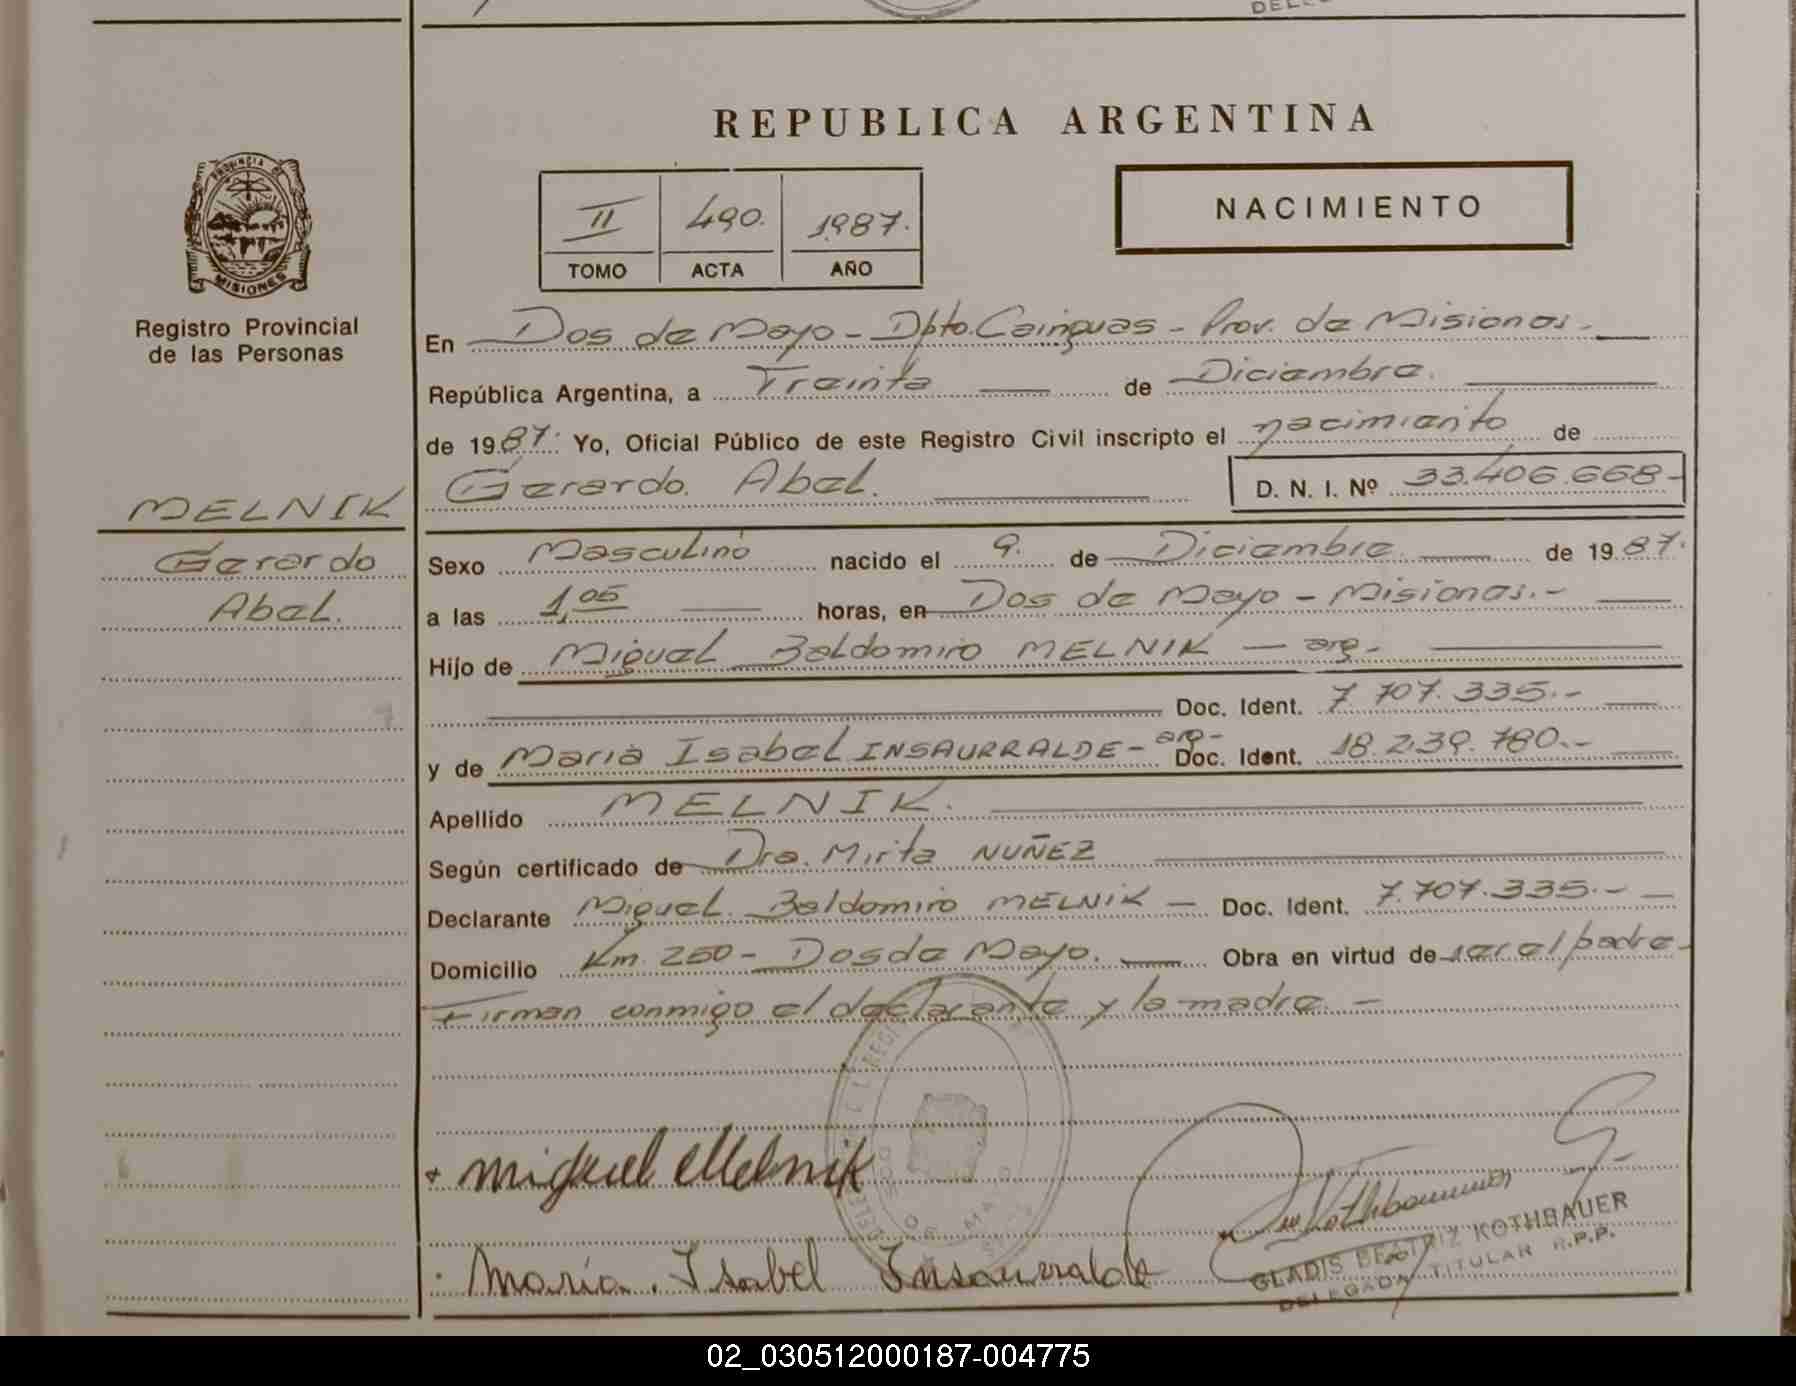 REPUBLICA ARGENTINA
PROVINCIA DE
MISIONES
Registro Provincial
de las Personas
MELNIK
Gerardo
Abel.
II 490. 1987.
TOMO ACTA AÑO
NACIMIENTO
En Dos de Mayo - Dpto. Cainguas - Prov. de Misiones.-
República Argentina, a Treinta de Diciembre.
de 1987. Yo, Oficial Público de este Registro Civil inscripto el nacimiento de
Gerardo. Abel. D. N. I. Nº 33.406.668-
Sexo Masculino nacido el 9. de Diciembre. de 1987.
a las 1,05 horas, en Dos de Mayo - Misiones.-
Hijo de Miguel Baldomiro MELNIK - arg.-
Doc. Ident. 7.707.335.-
y de Maria Isabel INSAURRALDE - arg- Doc. Ident. 18.239.780.-
Apellido MELNIK.
Según certificado de Dra. Mirta NUÑEZ
Declarante Miguel. Baldomiro MELNIK - Doc. Ident. 7.707.335.-
Domicilio Km. 250 - Dos de Mayo. Obra en virtud de ser el padre-
Firman conmigo el declarante y la madre.-
Miguel Melnik
DOS DE MAYO
María. Isabel Insaurralde
GLADIS BEATRIZ KOTHBAUER
DELEGADA TITULAR R.P.P.
02_030512000187-004775